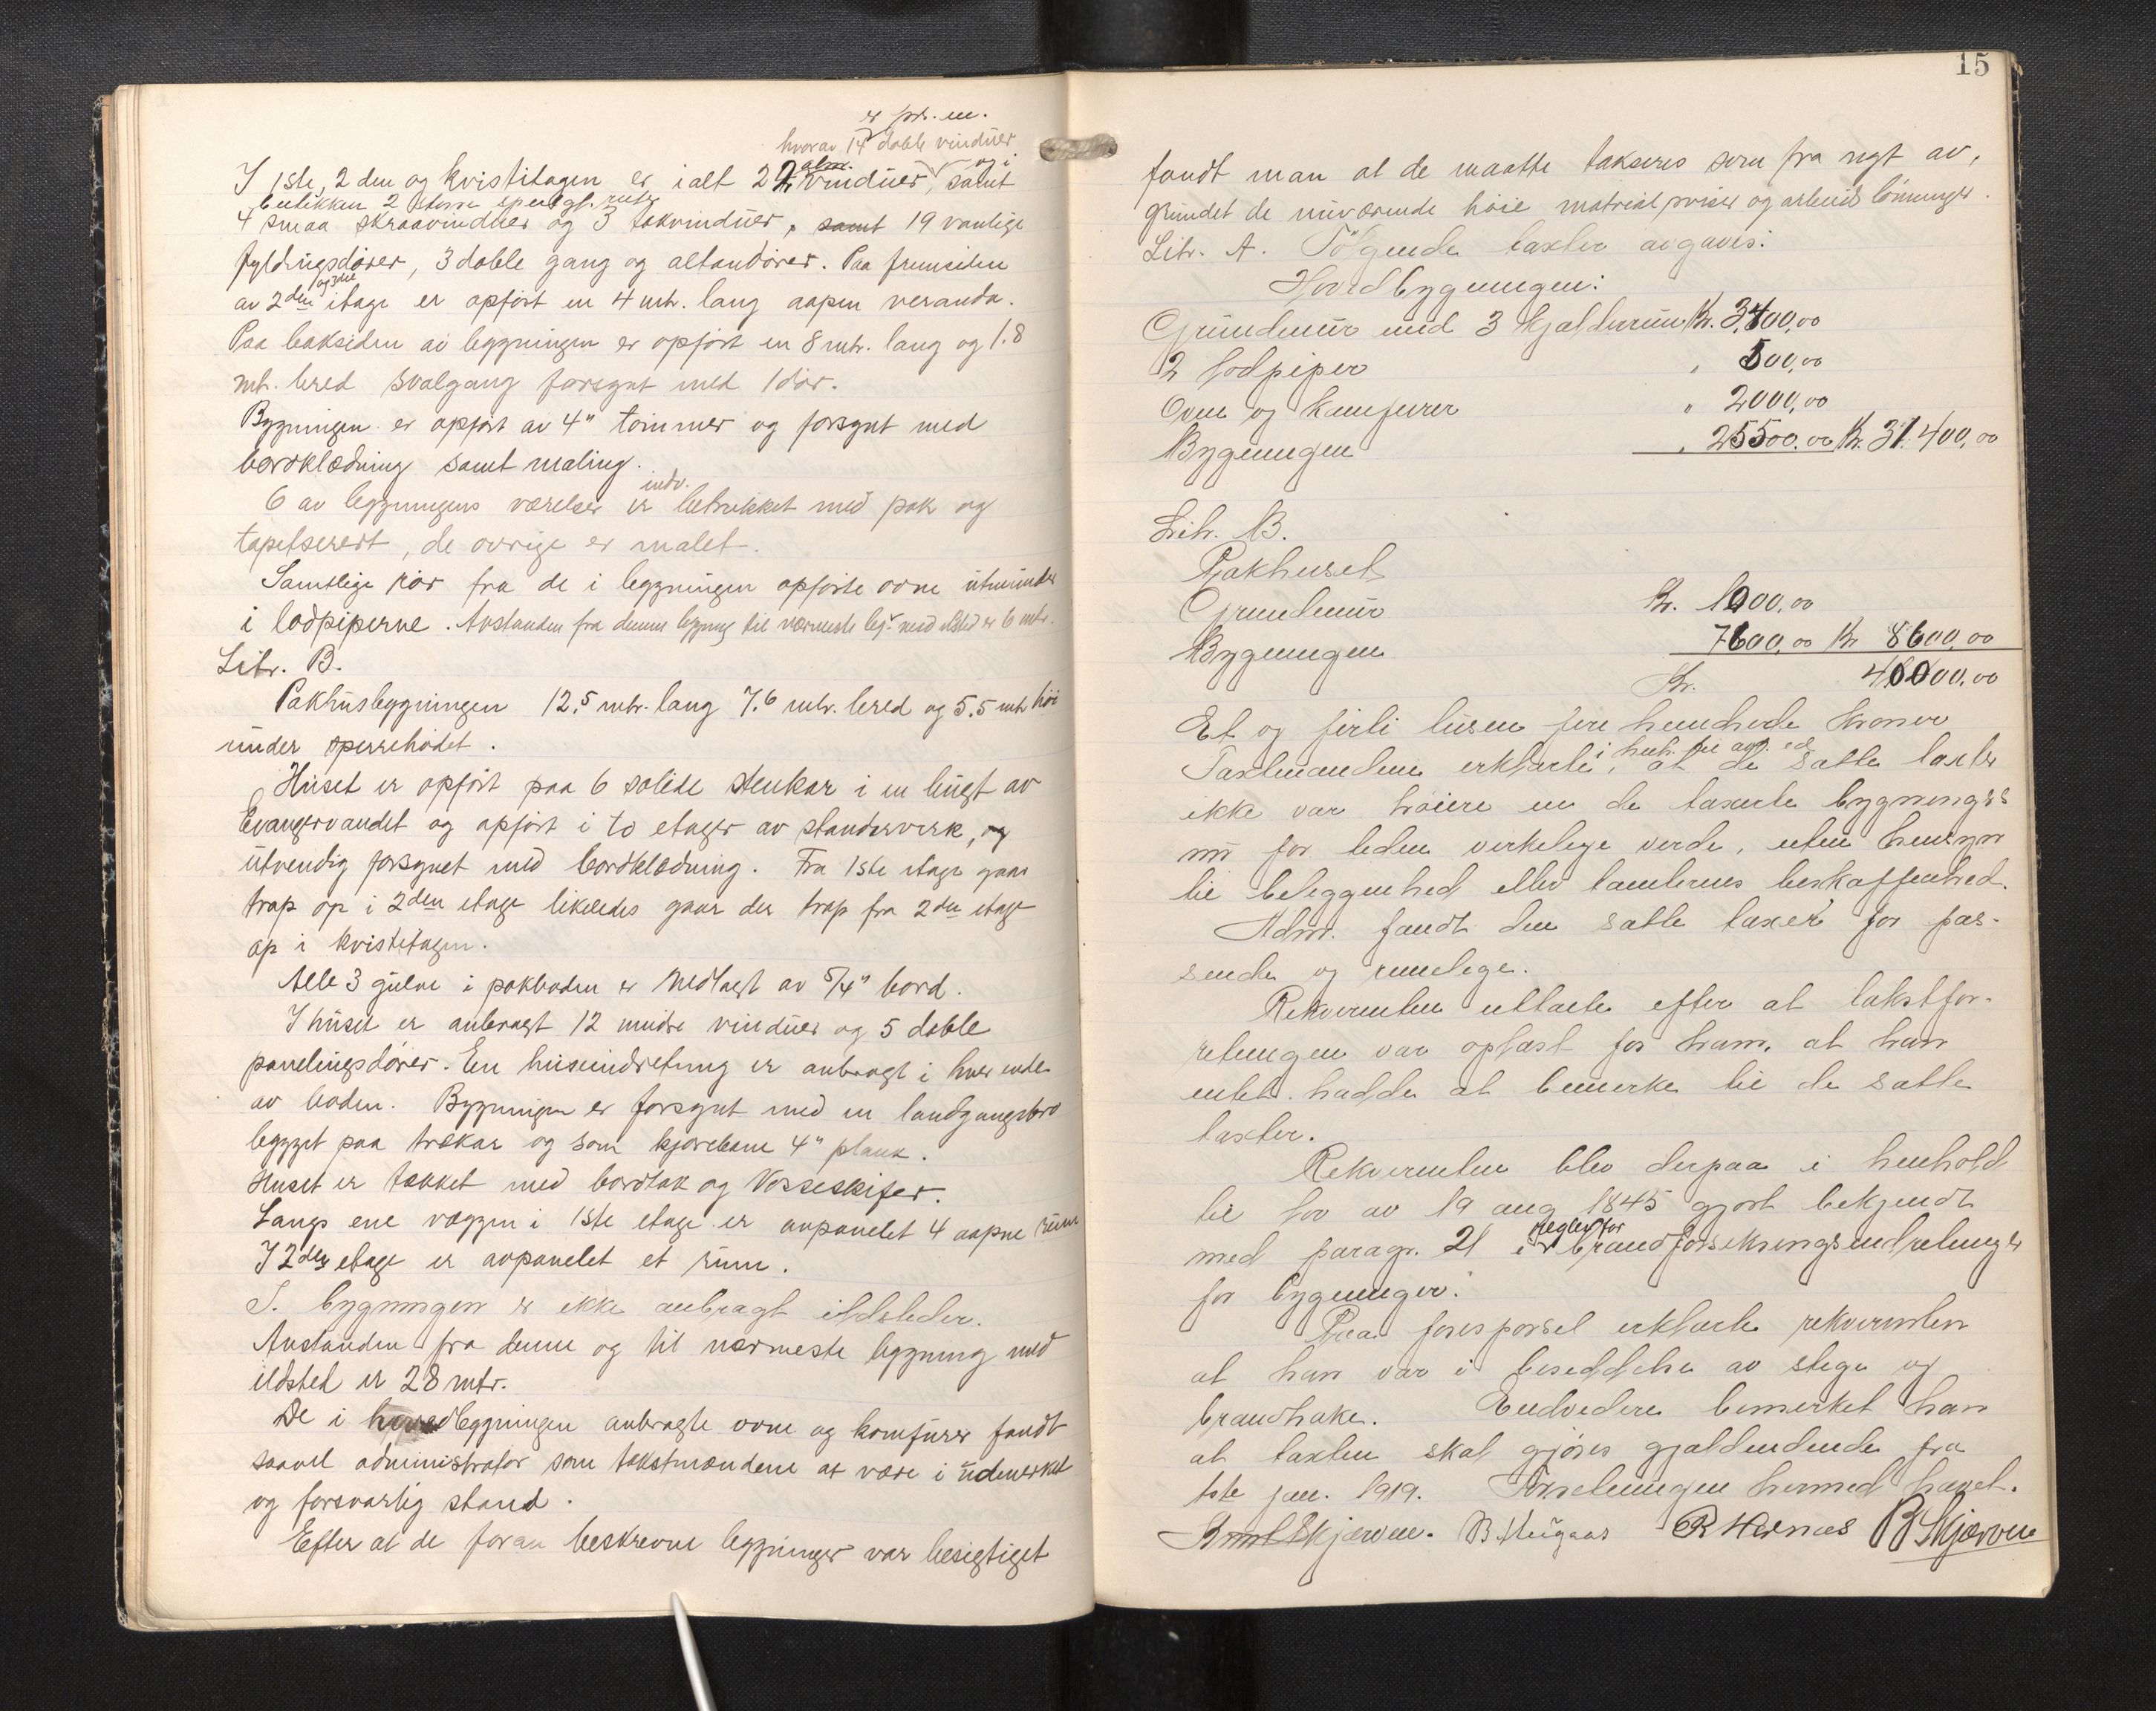 er ptr. m.
hvorav 14 doble vinduer
I 1ste, 2den og kvistetagen er ialt 22 alm. vinduer, samt og i
butikken 2 store speilgl. ruter
4 smaa skraavinduer og 3 takvinduer, samt 19 vanlige
fyldingsdører, 3 doble gang og altandører. Paa fremsiden
av 2den og 3die etage er opført en 4 mtr. lang aapen veranda.
Paa baksiden av bygningen er opført en 8 mtr. lang og 1.8
mtr. bred svalgang forsynt med 1 dør.
Bygningen er opført av 4" tømmer og forsynt med
bordklædning samt maling.
6 av bygningens værelser er indv. betrukket med pak og
tapetsert, de øvrige er malet.
Samtlige rør fra de i bygningen opførte ovne utmunder
i lodpiperne. Avstanden fra denne bygning til nærmeste byg. med ildsted er 6 mtr.
Litr. B.
Pakhusbygningen 12.5 mtr. lang 7.6 mtr. bred og 5.5 mtr høi
under sperrehodet.
Huset er opført paa 6 solide stenkar i en bugt av
Evangervandet og opført i to etager av standerverk, og
utvendig forsynet med bordklædning. Fra 1ste etage gaar
trap op i 2den etage likeledes gaar der trap fra 2den etage
op i kvistetagen.
Alle 3 gulve i pakboden er nedlagt av 5/4" bord.
I huset er anbragt 12 mindre vinduer og 5 doble
panelingsdører. En heiseindretning er anbragt i hver ende
av boden. Bygningen er forsynt med en landgangsbro
bygget paa trækar og som kjørebane 4" plank.
Huset er tækket med bordtak og Vosseskifer.
Langs ene væggen i 1ste etage er avpanelet 4 aapne rum
I 2den etage er avpanelet et rum.
I. bygningen er ikke anbragt ildsteder.
Avstanden fra denne og til nærmeste bygning med
ildsted er 28 mtr.
De i hovedbygningen anbragte ovne og komfurer fandt
saavel administrator som takstmændene at være i udmerket
og forsvarlig stand.
Efter at de foran beskrevne bygninger var besigtiget
15
fandt man at de maatte takseres som fra nyt av,
grundet de nuværende høie matrialpriser og arbeidslønninger.
Litr. A. Følgende taxter avgaves:
Hovedbygningen:
Grundmur med 3 kjælderrum Kr. 3,400,00
2 lodpiper " 500,00
Ovne og komfurer " 2000,00
Bygningen " 25500.00 Kr. 31.400,00
Litr. B.
Pakhuset
Grundmur Kr. 1000,00
Bygningen 7600,00 Kr 8600,00
Kr. 40000,00
Et og firti tusen hundrede kroner
Taxtmændene erklærte, i henh. til avl. ed at de satte taxter
ikke var høiere en de taxerte bygninger
nu for tiden virkelige verde, uten hensyn
til beliggenhed eller tomternes beskaffenhed.
Adm. fandt den satte taxer for pas-
sende og rimelige.
Rekvirenten uttalte efter at takstfor-
retningen var oplæst for ham, at han
intet hadde at bemerke til de satte
taxter.
Rekvirenten blev derpaa i henhold
til lov av 19 aug 1845 gjort bekjendt
med paragr. 21 i Regler for brandforsikringsindretninger
for bygninger.
Paa forespørsel erklærte rekvirenten
at han var i besiddelse av stige og
brandhake. Endvidere bemerket han
at taxten skal gjøres gjældendende fra
1ste jan. 1919. Forretningen hermed hævet.
Skjerven. R Hernæs B Skjerven